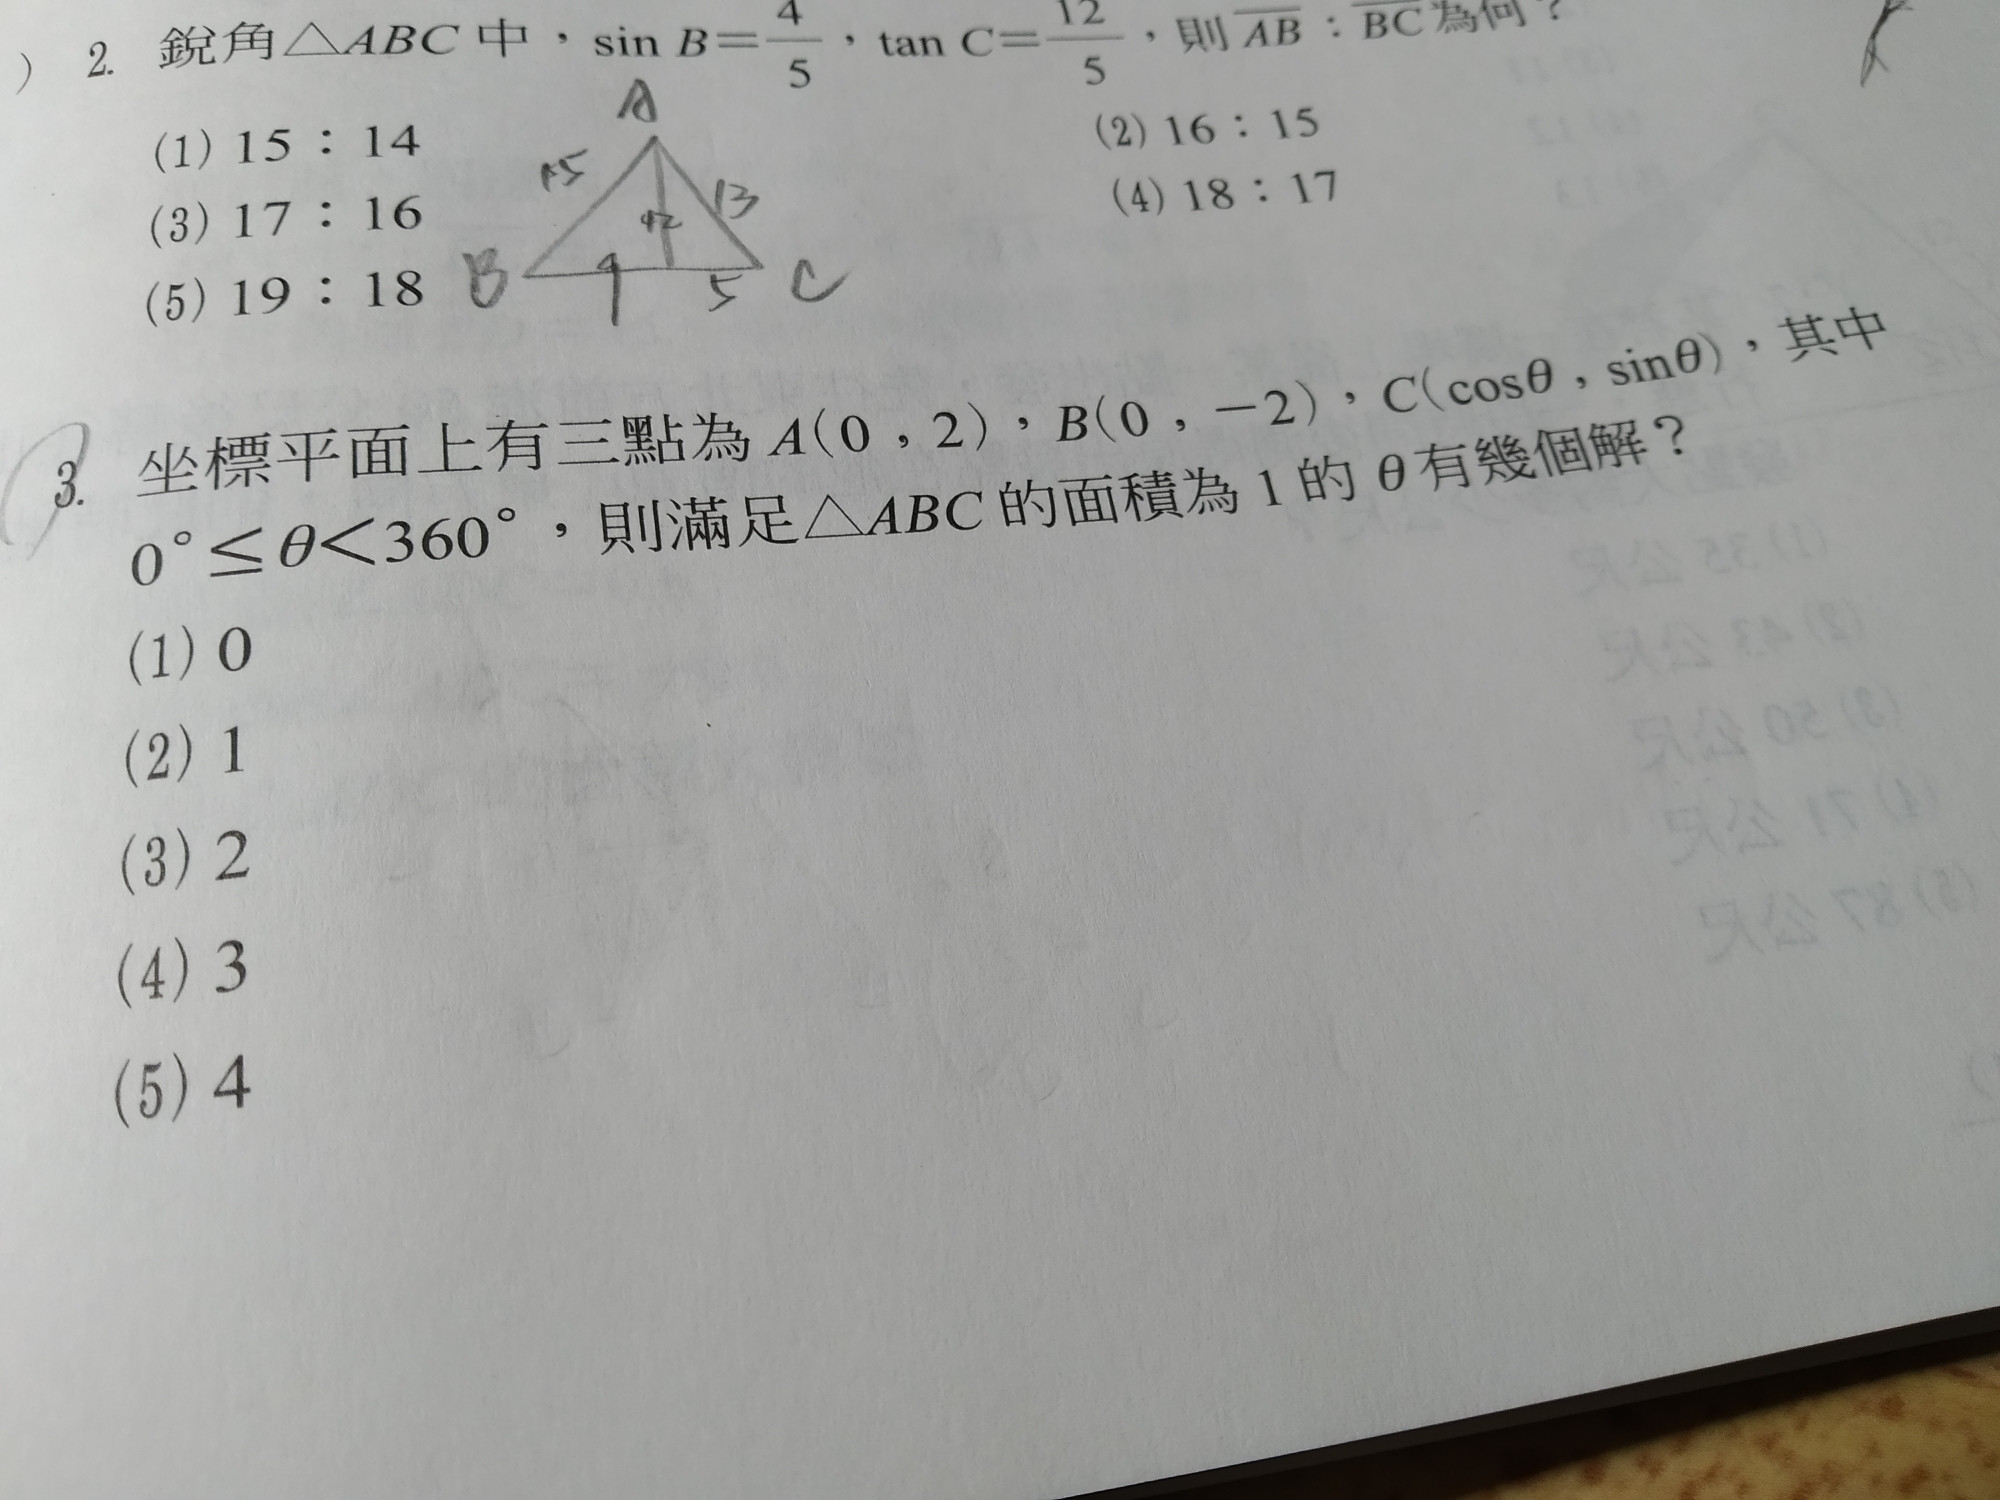 ) 2. 銳角△ABC 中，sin B=4/5，tan C=12/5，則 AB：BC 為何？
(1) 15：14
(2) 16：15
(3) 17：16
(4) 18：17
(5) 19：18
A
15
13
12
B
9
5
C
3. 坐標平面上有三點為 A(0，2)，B(0，−2)，C(cosθ，sinθ)，其中
0°≤θ<360°，則滿足△ABC 的面積為 1 的 θ 有幾個解？
(1) 0
(2) 1
(3) 2
(4) 3
(5) 4
(1) 35 公尺
(2) 43 公尺
(3) 50 公尺
(4) 71 公尺
(5) 87 公尺